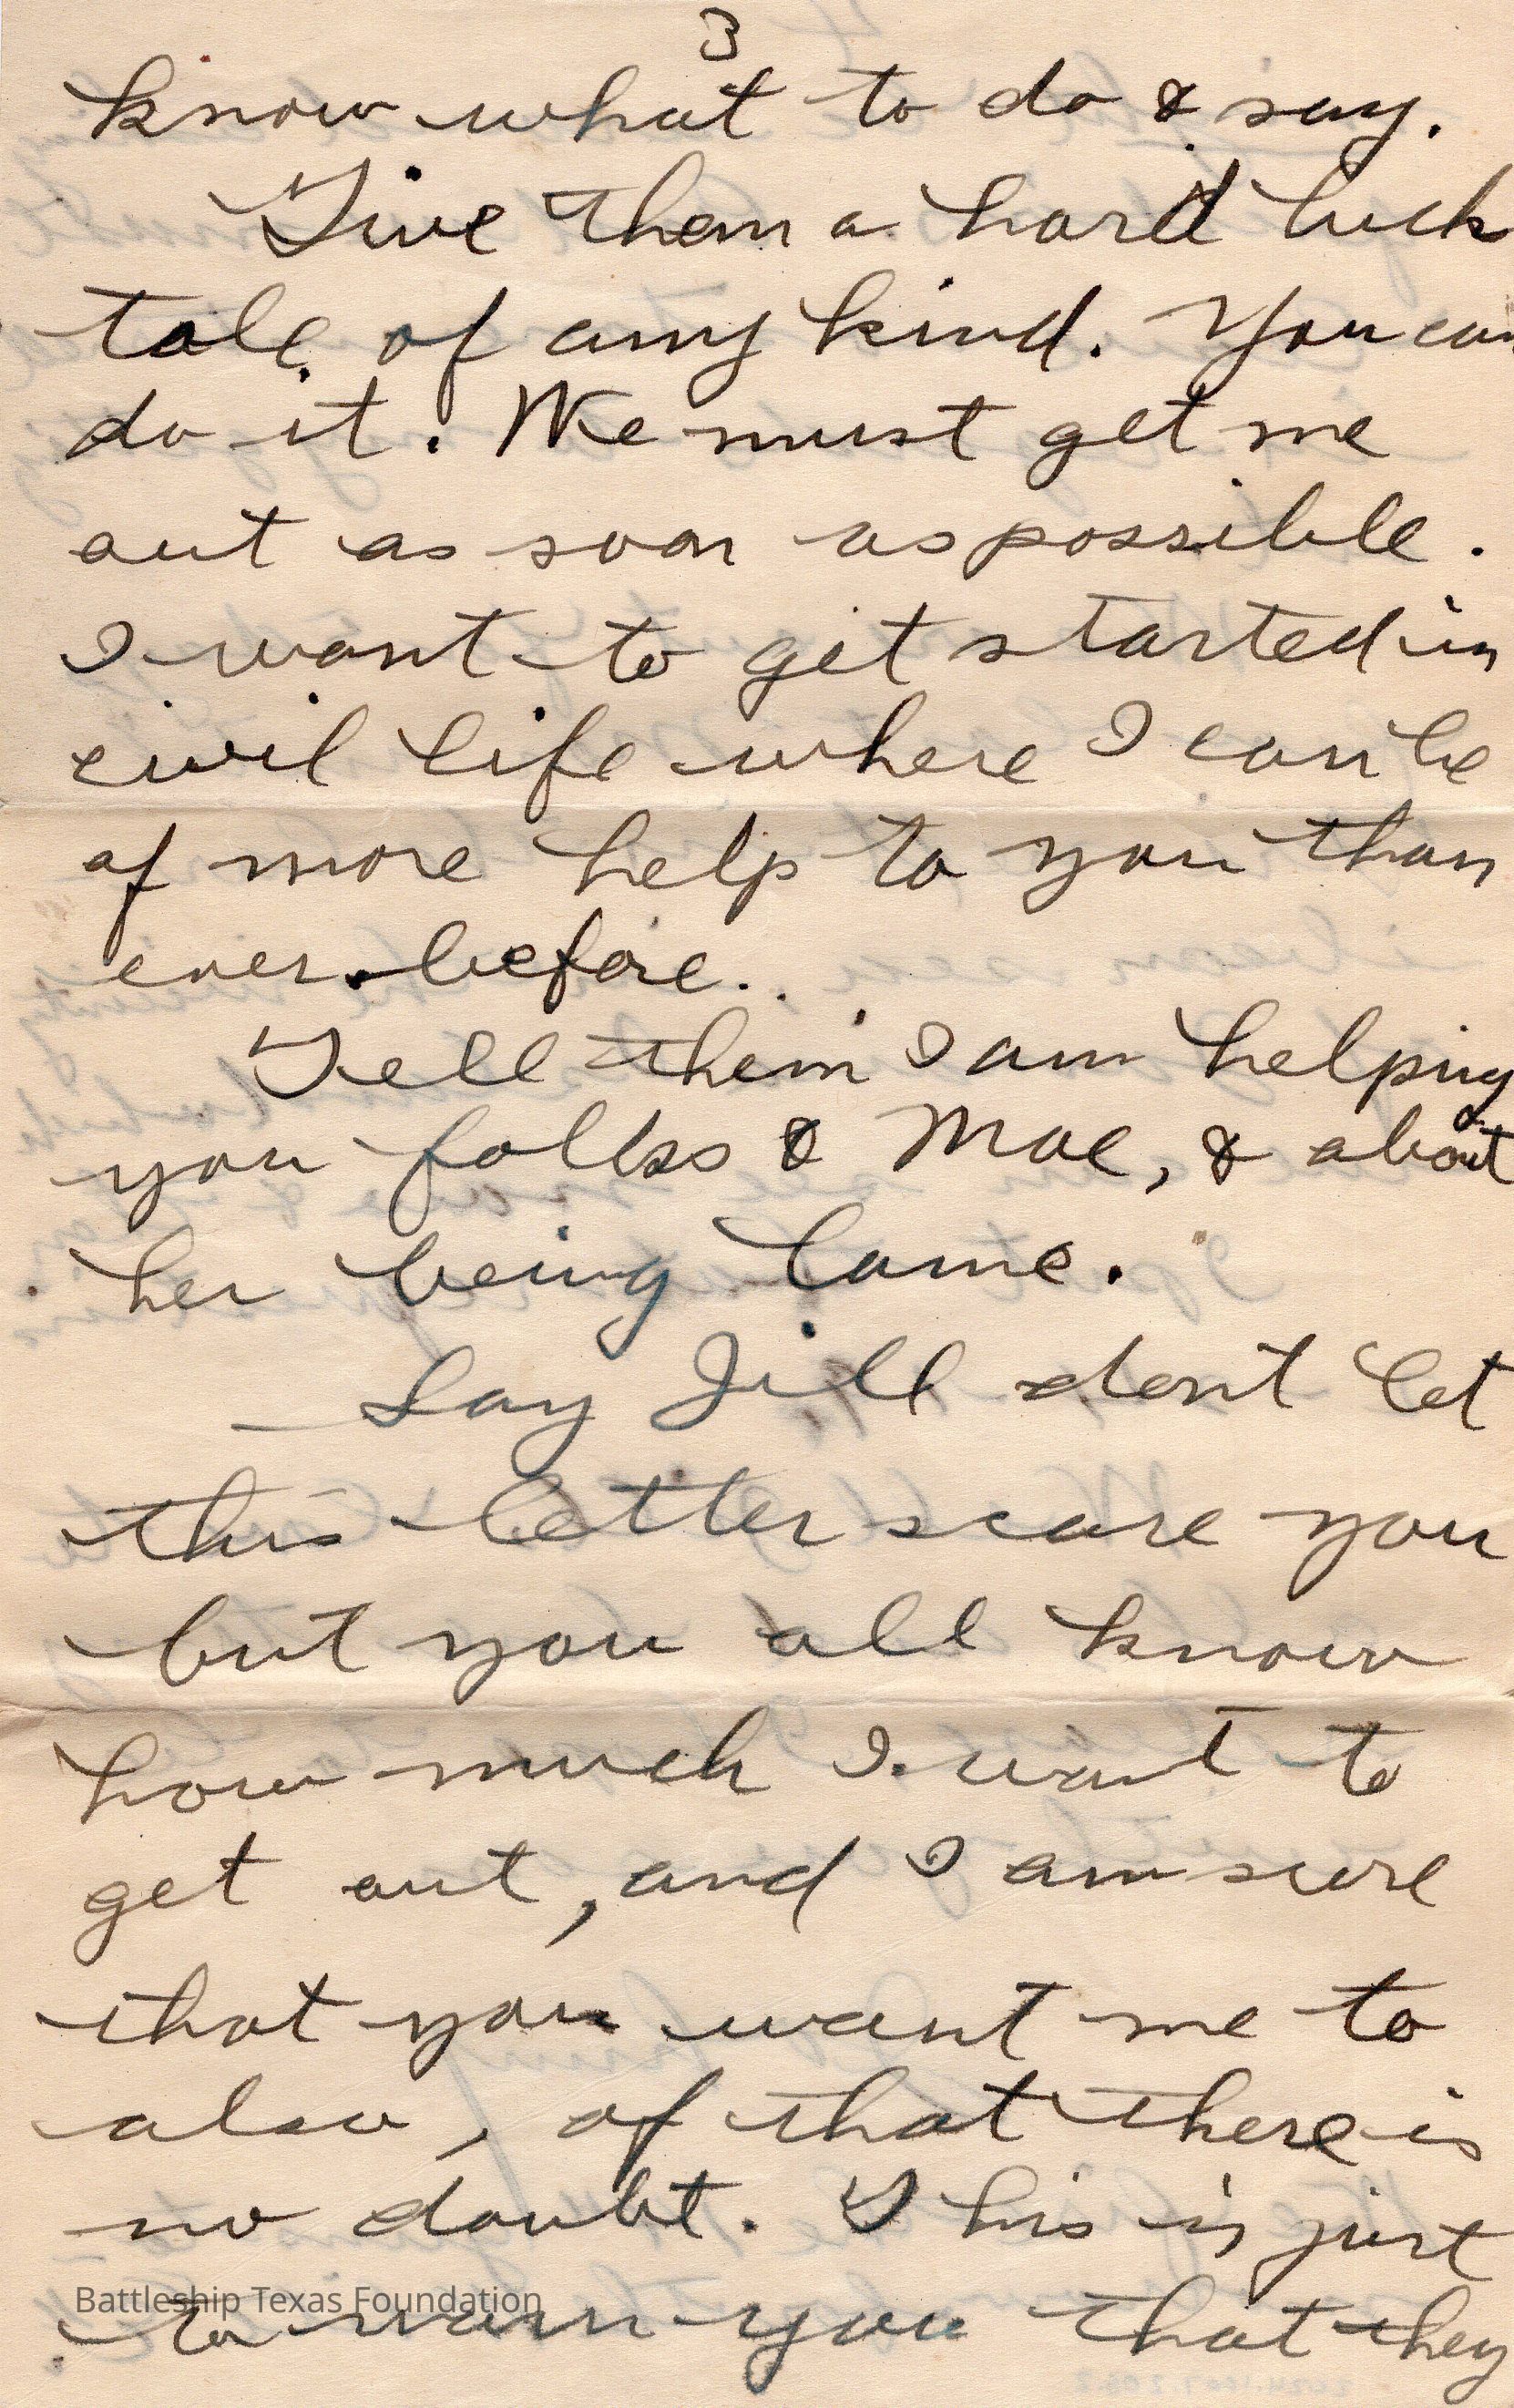 3
know what to do & say.
Give them a hard luck
tale of any kind. You can
do it. We must get me
out as soon as possible.
I want to get started in
civil life where I can be
of more help to you than
ever before.
Tell them I am helping
you folks & Mae, & about
her being lame.
Say Jill dont let
this letter scare you
but you all know
how much I want to
get out, and I am sure
that you want me to
also, of that there is
no doubt. This is just
Battleship Texas Foundation
to warn you that they